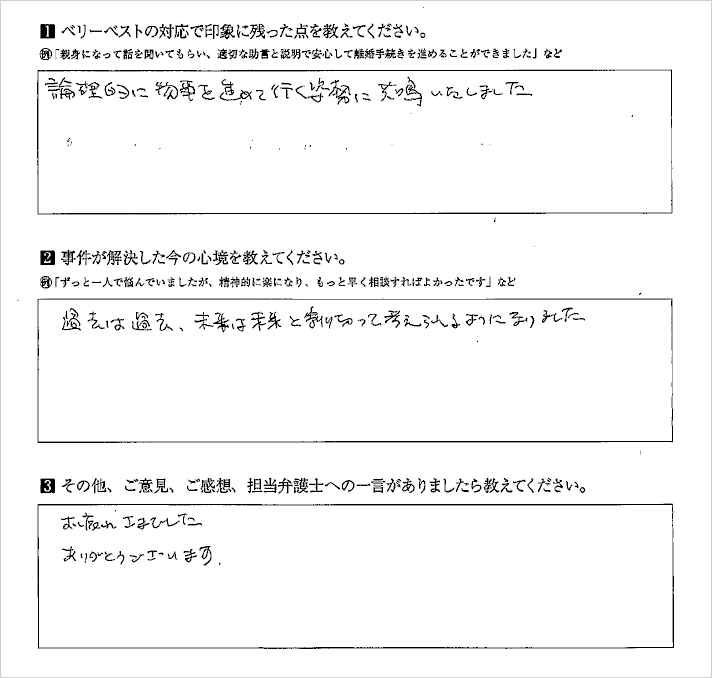 1 ベリーベストの対応で印象に残った点を教えてください。
例「親身になって話を聞いてもらい、適切な助言と説明で安心して離婚手続きを進めることができました」など
論理的に物事を進めて行く姿勢に共鳴いたしました
2 事件が解決した今の心境を教えてください。
例「ずっと一人で悩んでいましたが、精神的に楽になり、もっと早く相談すればよかったです」など
過去は過去、未来は未来と割り切って考えられるようになりました
3 その他、ご意見、ご感想、担当弁護士への一言がありましたら教えてください。
お疲れさまでした
ありがとうございます.